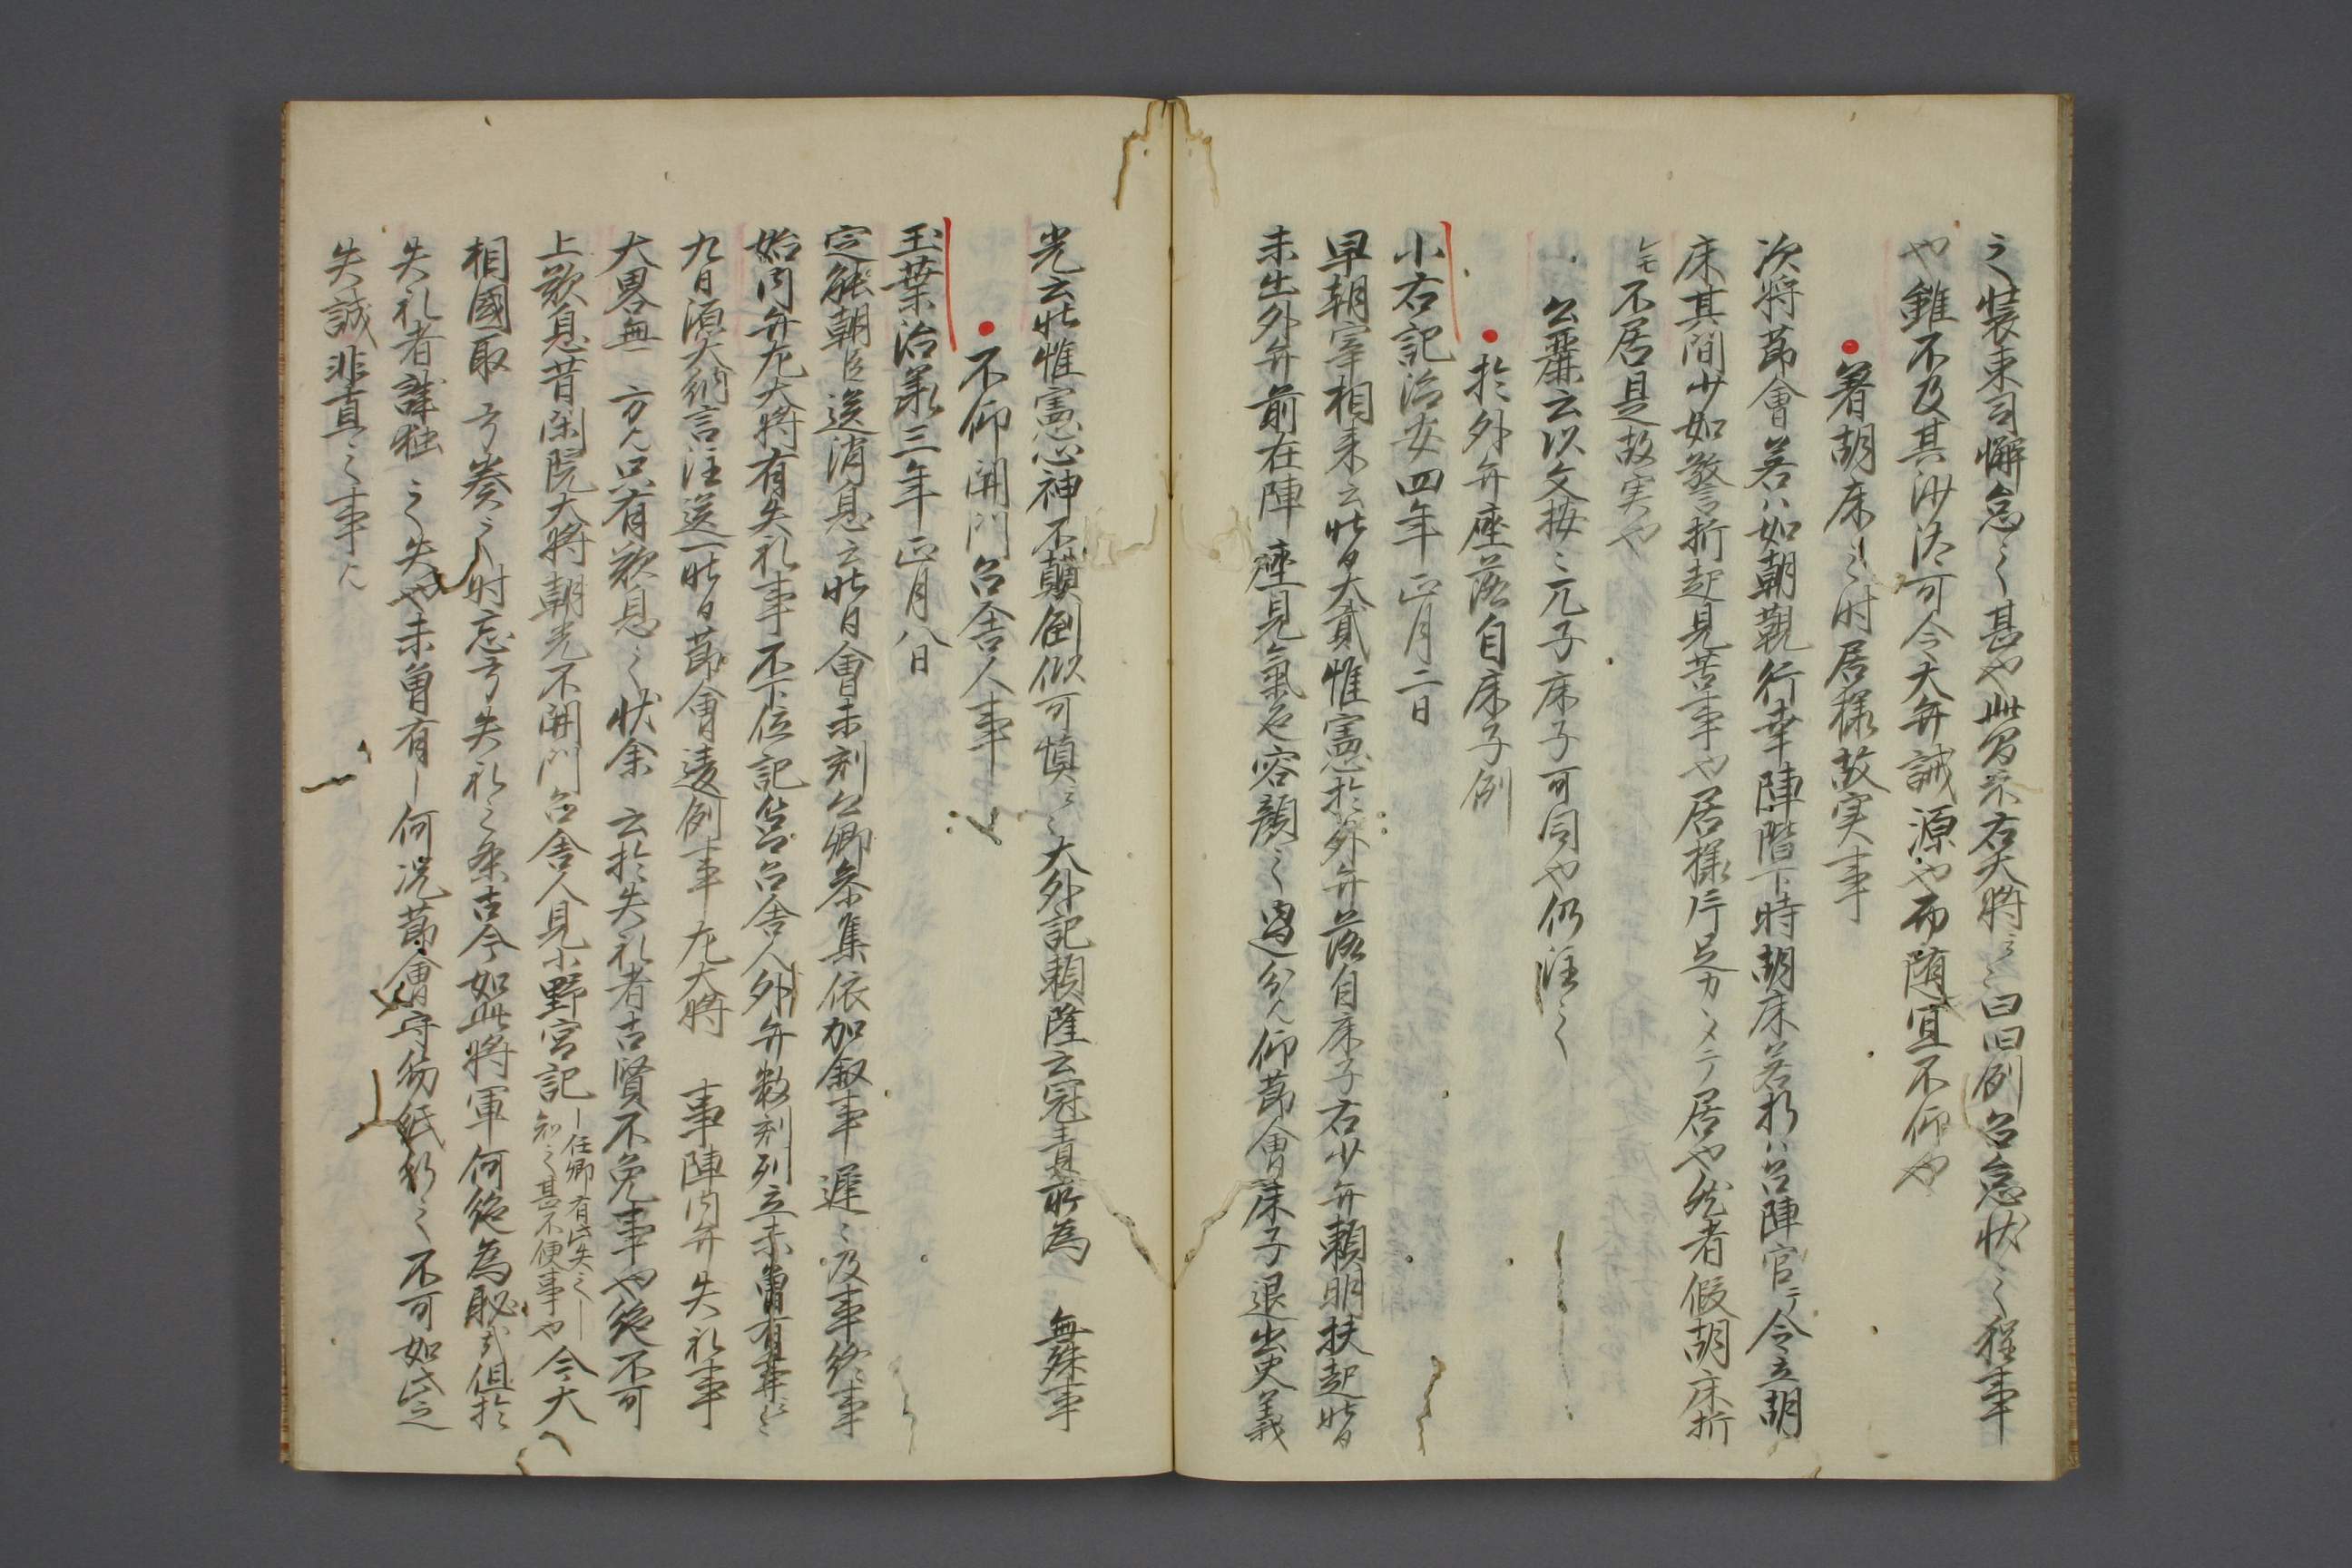 之装束司懈怠之甚や此間示右大将云々曰例召怠状之程事
や雖不及其沙汰可令大弁誡源や而随宜不仰や
著胡床之時居様故実事
次将節會若ハ如朝覲行幸陣階下時胡床若折ハ召陣官テ令立胡
床其間少如警折起見苦事や居様片足カヽメテ居や然者假胡床折
レモ不居是故実や
公麗云以文按之兀子床子可同や仍注之
於外弁座落自床子例
小右記治安四年正月二日
早朝宰相来云昨日大貳惟憲於外弁落自床子右少弁頼明扶起昨日
未出外弁前在陣座見氣色容顔之過分人仰節會床子退出史義
光云昨惟憲心神不顛倒似可慎云々大外記頼隆云冠責所為無殊事
不仰開門召舎人事
玉葉治承三年正月八日
定能朝臣送消息云昨日會未刻公卿参集依加叙事遅々及事終事
始内弁左大将有失礼事不下位記筥召舎人外弁数刻列立未曽有事云々
九日源大納言注送一昨日節會違例事左大将 事陣内弁失礼事
大畧無 方人只有歎息之状余 云於失礼者古賢不免事や絶不可
上歎息昔閑院大将朝光不開門召舎人見小野宮記 任卿有此失之 知之甚不便事や 今大
相國取弓奏之時忘弓失礼之条古今如此将軍何絶為恥哉但於
失礼者誰独之失や未曽有 何況節會守笏紙於之不可如此之
失誠非直之事人